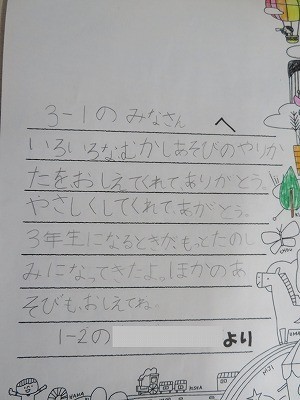 3-1の みなさん へ
いろいろなむかしあそびのやりか
たを、おしえてくれて、ありがとう。
やさしくしてくれて、あがとう。
3年生になるときが、もっとたのし
みになってきたよ。ほかのあ
そびも、おしえてね。
1-2の より